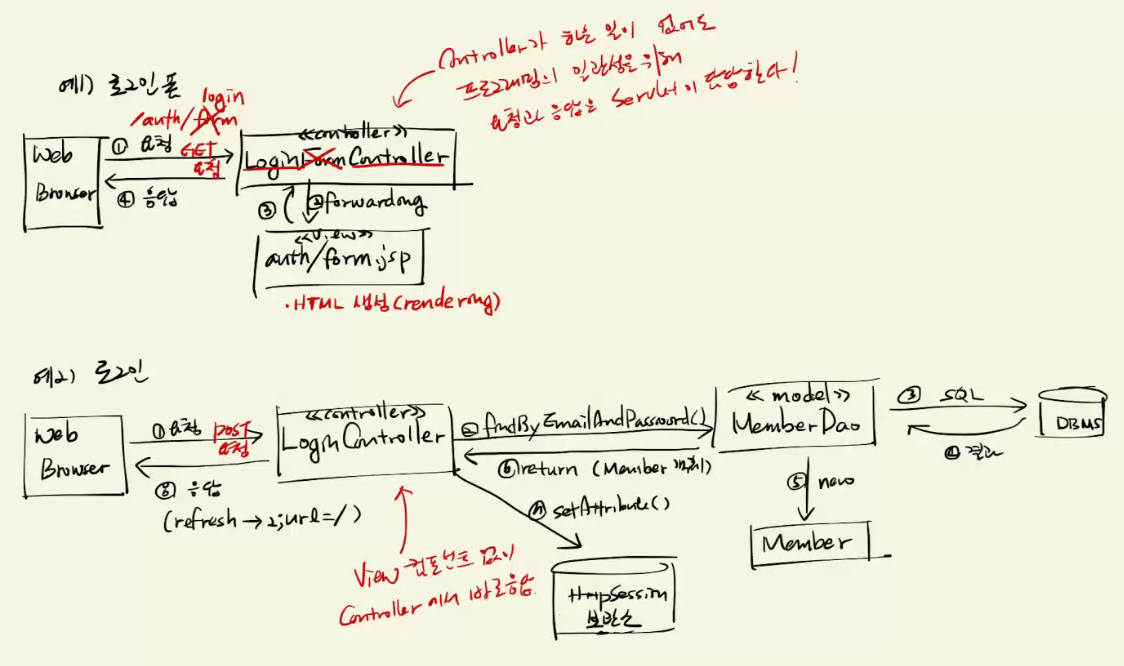 Controller가 하는 일이 없어도
프로그래밍의 일관성을 위해
요청과 응답은 Servlet이 담당한다!
예1) 로그인 폼
login
/auth/form
Web
Browser
① 요청 GET
요청
④ 응답
<<controller>>
LoginFormController
③
② forwarding
<<view>>
auth/form.jsp
· HTML 생성(rendering)
예2) 로그인
Web
Browser
① 요청 POST
요청
⑧ 응답
(refresh → 2;url=/)
<<controller>>
LoginController
② findByEmailAndPassword()
⑥ return (Member 객체)
<<model>>
MemberDao
③ SQL
④ 결과
DBMS
⑤ new
Member
⑦ setAttribute()
HttpSession
보관소
View 컴포넌트 없이
Controller에서 바로 응답